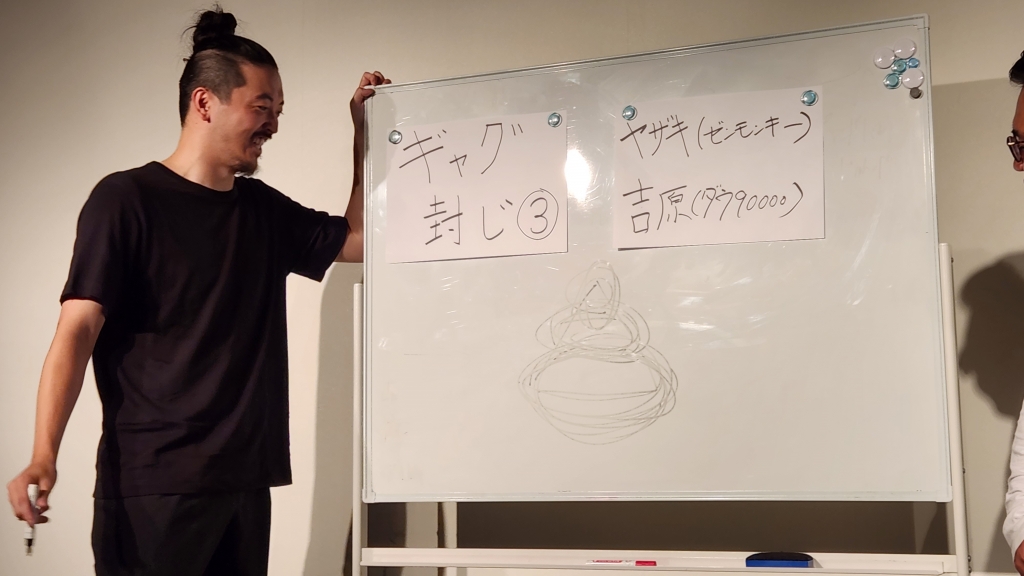 ギャグ
封じ③
ヤザキ(ゼンモンキー)
吉原(ダウ90000)